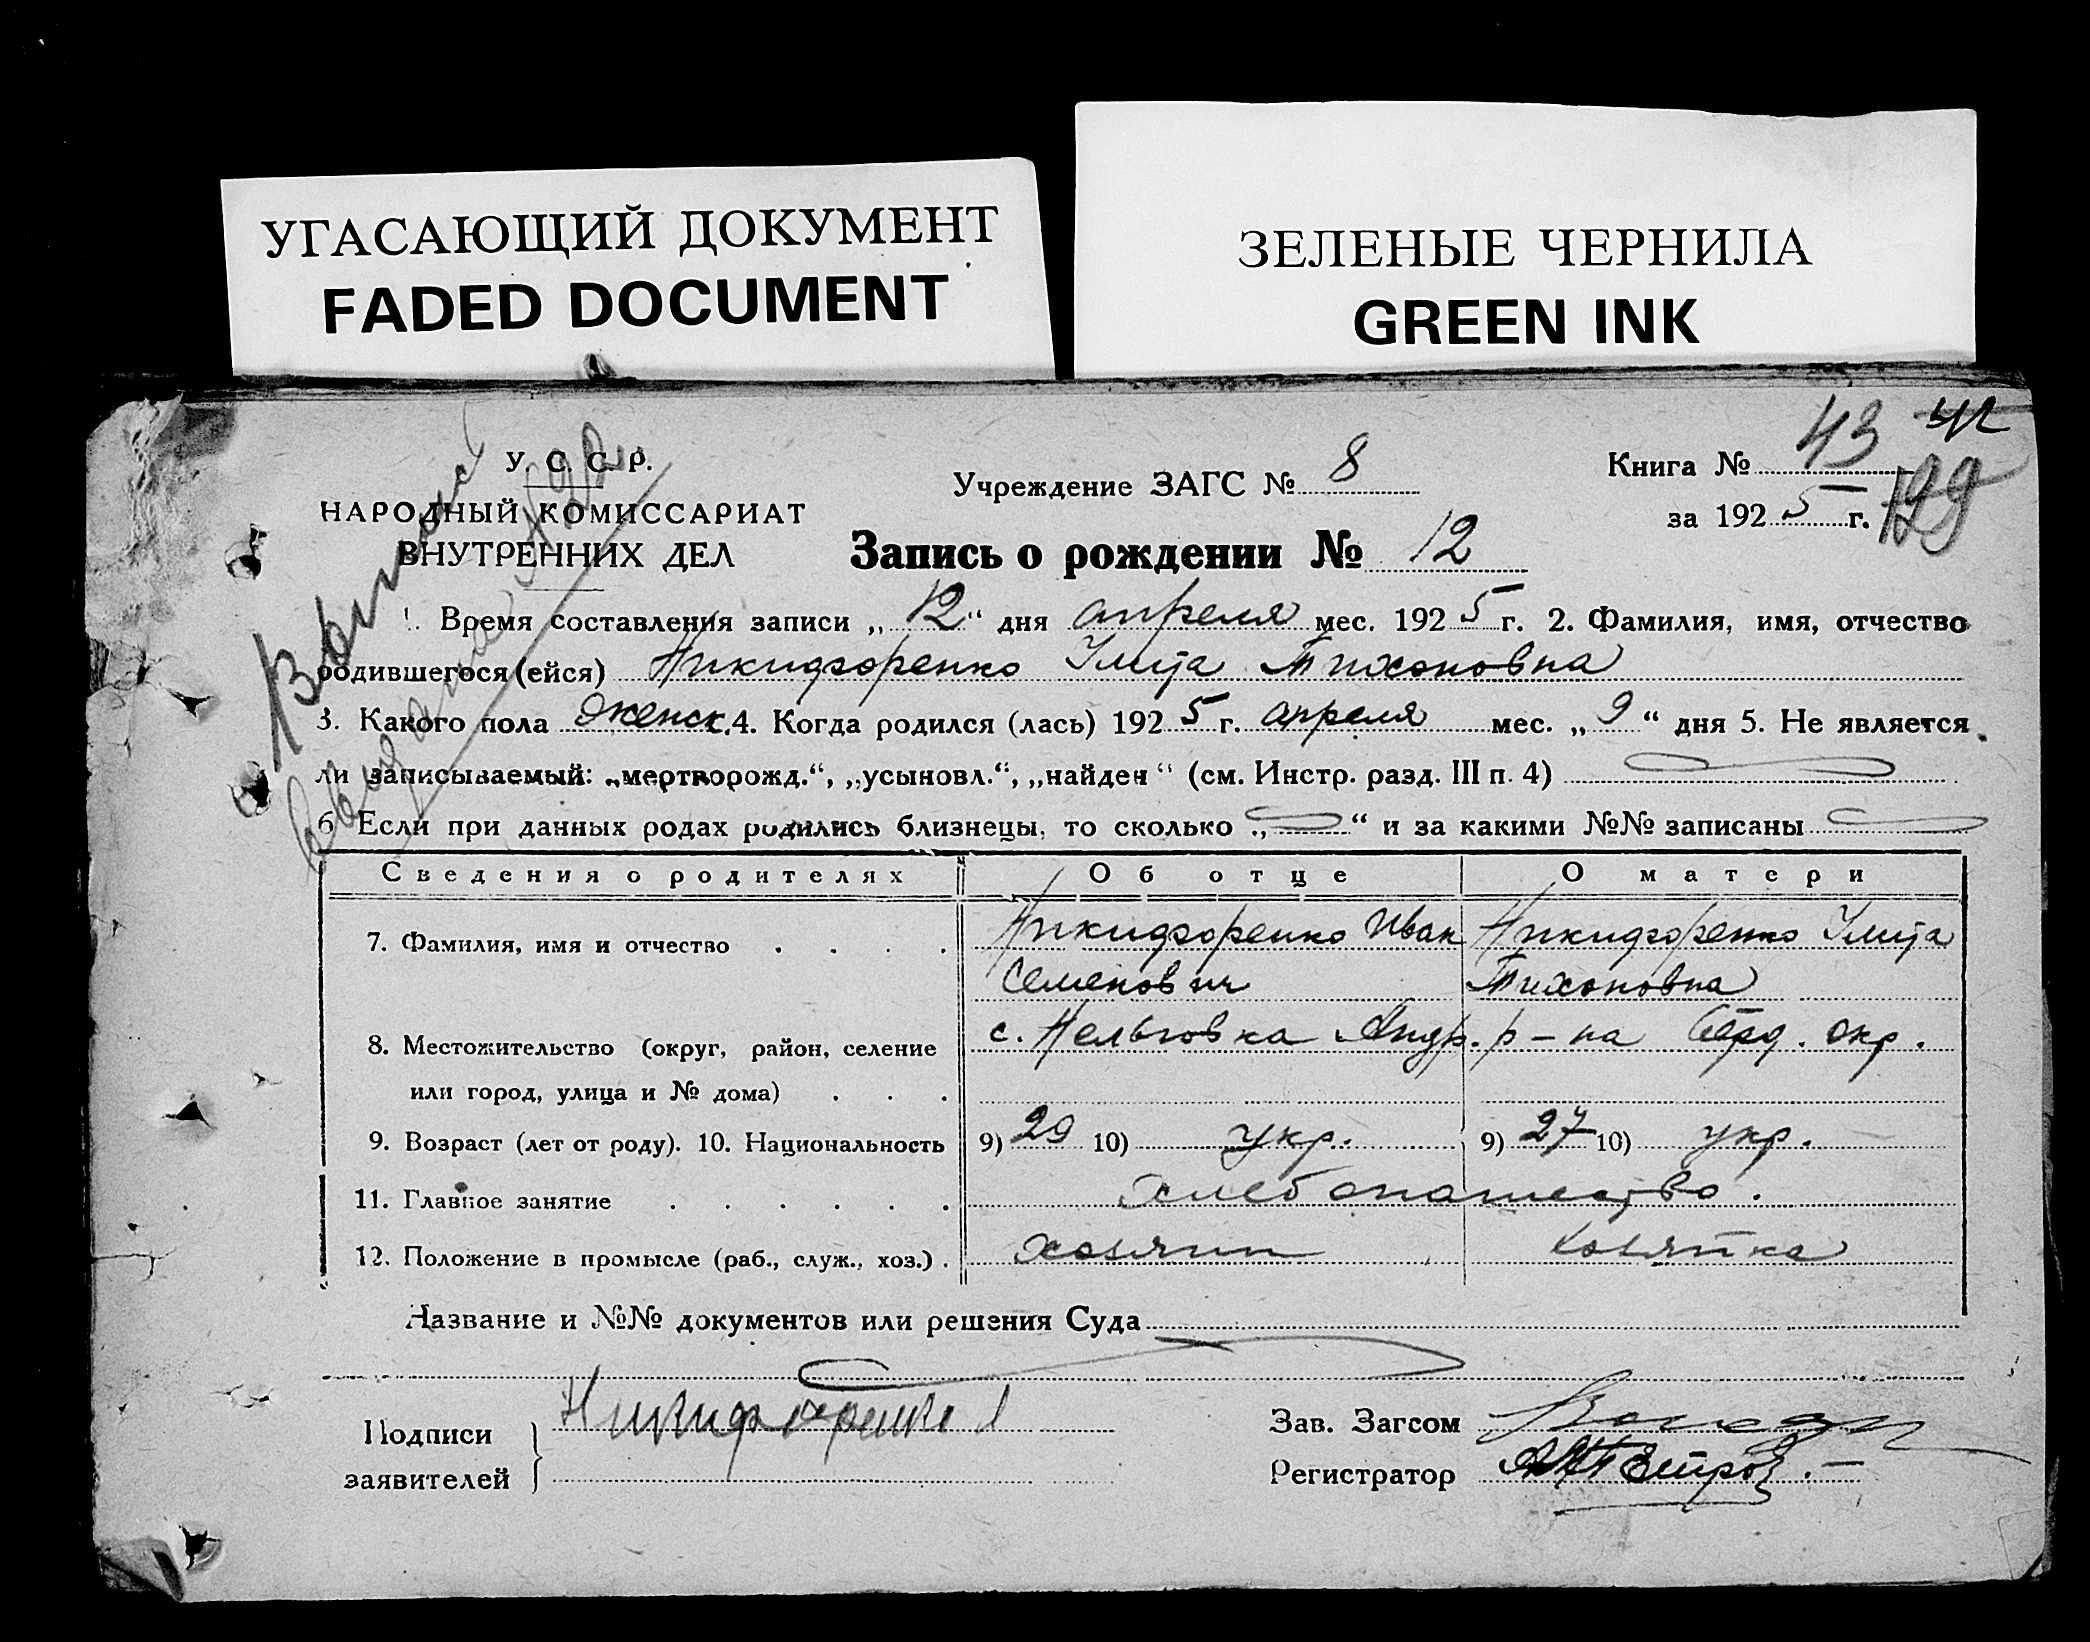 УГАСАЮЩИЙ ДОКУМЕНТ
FADED DOCUMENT
ЗЕЛЕНЫЕ ЧЕРНИЛА
GREEN INK
У. С. С. Р.
НАРОДНЫЙ КОМИССАРИАТ
ВНУТРЕННИХ ДЕЛ
Учреждение ЗАГС № 8
Книга № 43
за 1925 г. 199
Запись о рождении № 12
1. Время составления записи „12“ дня апреля мес. 1925 г. 2. Фамилия, имя, отчество
родившегося (ейся) Никифоренко Улита Тихоновна
3. Какого пола женск. 4. Когда родился (лась) 1925 г. апреля мес. „9“ дня 5. Не является
ли записываемый: „мертворожд.“, „усыновл.“, „найден“ (см. Инстр. разд. III п. 4)
6 Если при данных родах родились близнецы, то сколько „ “ и за какими №№ записаны
Сведения о родителях Об отце О матери
7. Фамилия, имя и отчество . . . . Никифоренко Иван Никифоренко Улита
Семенович Тихоновна
8. Местожительство (округ, район, селение с. Нельговка Андр. р-на Берд. окр.
или город, улица и № дома) . . .
9. Возраст (лет от роду). 10. Национальность 9) 29 10) укр. 9) 27 10) укр.
11. Главное занятие . . . . . . хлебопашество.
12. Положение в промысле (раб., служ., хоз.) . хозяин хозяйка
Название и №№ документов или решения Суда
Подписи
заявителей
Никифоренко
Зав. Загсом
Регистратор Петров